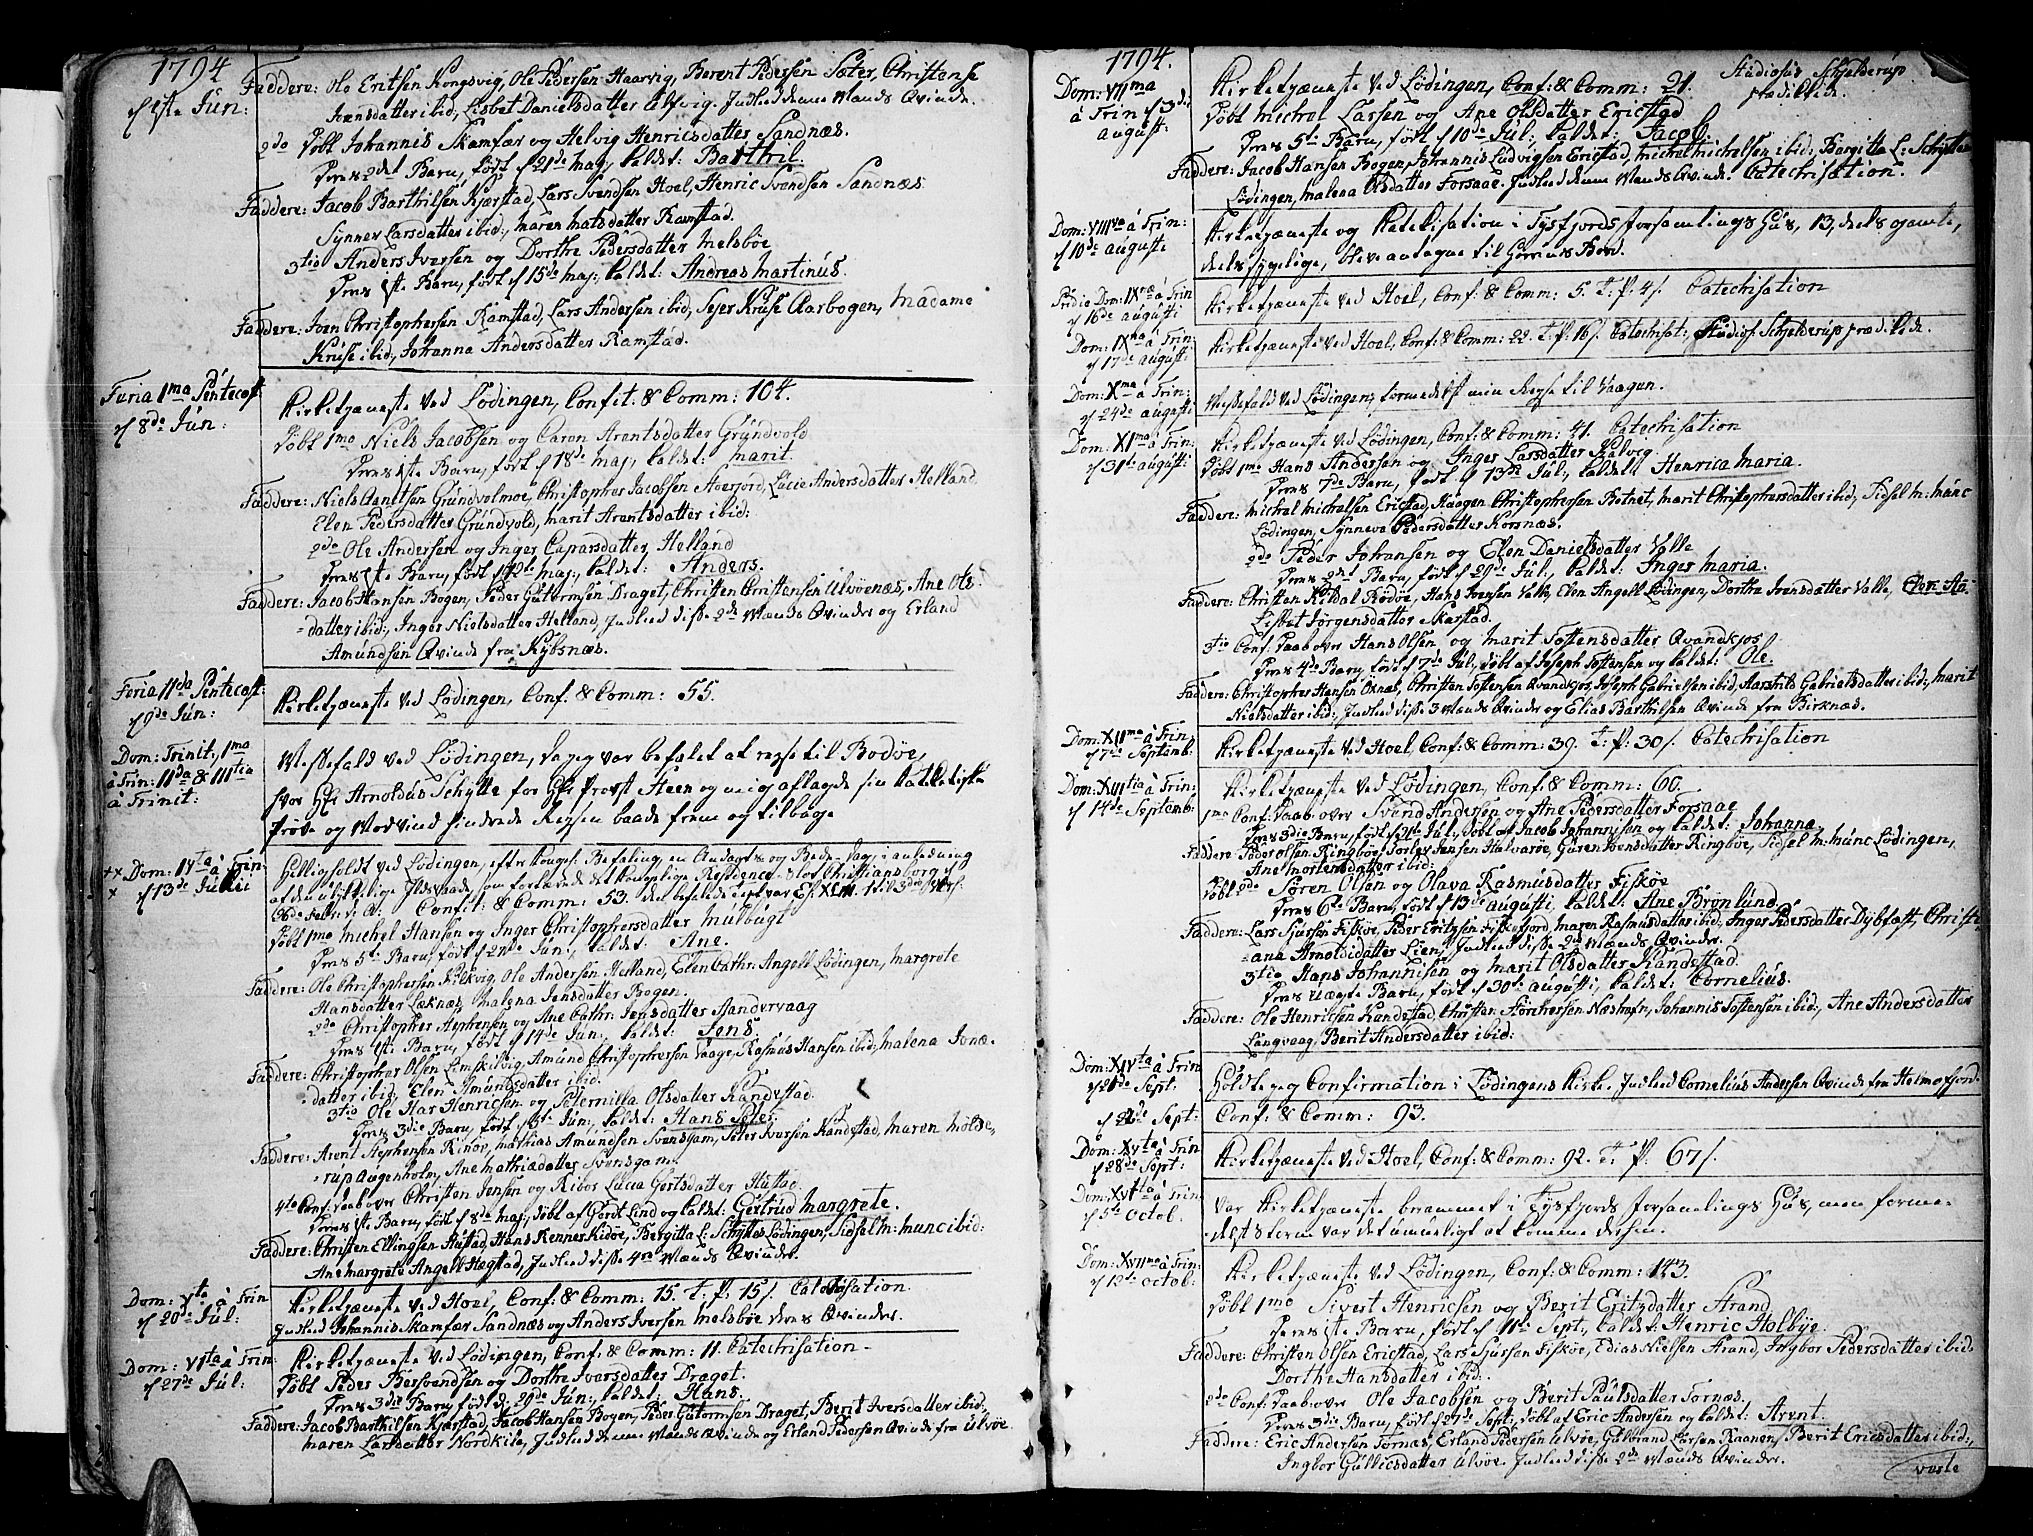 1794
d 1ste Jun:
Faddere: Ole Eritsen Kongsvig, Ole Pedersen Haarvig, Berent Pedersen Sæter, Christense
Iversdatter ibid, Lisbet Danielsdatter Ulvig. Indled denne Mands Qvinde.
2do Døbt Johannis Skamfær og Helvig Henricsdatter Sandnæs.
Deres 2det Barn, født d 21de Maj, kaldet: Barthil.
Faddere: Jacob Barthilsen Kjærstad, Lars Svendsen Hoel, Henric Svendsen Sandnæs
Synner Larsdatter ibid:, Maren Matsdatter Ramstad.
3tio Anders Iversen og Dorthe Pedersdatter Melsbøe
Deres 1ste Barn, født d 15de Maj, kaldet: Andreas Martinus.
Faddere: Joen Christophersen Ramstad, Lars Andersen ibid, Sejer Kruse Aarbogen, Madame
Kruse ibid, Johanna Andersdatter Ramstad.
Furia 1ma Pentecost
d 8de Jun:
Kirketjæneste Ved Lødingen, Confit. & Comm: 104.
Døbt 1mo Niels Jacobsen og Caren Arentsdatter Grundvold
Deres 1ste Barn, født d 18de Maj, kaldet: Marit.
Faddere: Niels Arentsen Grundvolmoe, Christopher Jacobsen Averfjord, Lucie Andersdatter Helland,
Elen Pedersdatter Grundvold, Marit Arentsdatter ibid:
2do Ole Andersen og Inger Caparsdatter Helland
Deres 1ste Barn, født d 12te Maj, kaldet: Anders.
Faddere: Jacob Hansen Bogen, Peder Gutormsen Draget, Christen Christensen Ulvøenæs, Ane Ols-
datter ibid:, Inger Nielsdatter Helland, Indled disse 2de Mænds Qvinder og Erland
Amundsen Qvinde fra Kybsnæs.
Feria 11da Pentecost:
d 9de Jun:
Kirketjæneste Ved Lødingen, Conf. & Comm: 55.
Dom: Trinit., 1ma
à Trin: 11da & 111tia
à Trinit:
Messefald ved Lødingen, da jeg var befalet at rejse til Bodøe,
hvor Hr Arnoldus Schytte for Hr Provst Steen og mig aflagde sin Catechetiske
Prøve og Modvind hindrede Rejsen baade frem og tilbage
Dom: 1Vta à Trin:
d 13de Julii
Helligholdt ved Lødingen, efter Kongel: Befaling, en Andagts og Bede-Dag, i anledning
af den ulykkelige Ildsvaade, som fortærede det kongelige Residence-Slot Christiansborg d
26de Febr: i A: Confit: & Comm: 53. den befalede text var
Døbt 1mo Michel Hansen og Inger Christophersdatter Mulbugt
Deres 5te Barn, født d 22de Jun, kaldet: Ane.
Faddere: Ole Christophersen Kilkvig, Ole Andersen Helland, Elen Cathr: Angell Lødingen, Margrete
Hansdatter Læknæs, Malena Jensdatter Bogen.
2do Christopher Stephensen og Ane Cathr: Jensdatter Sandervaag
Deres 1ste Barn, født d 14de Jun, kaldet: Jens.
Faddere: Christopher Olsen Limskilvig, Amund Christophersen Vaage, Rasmus Hansen ibid, Malena Jonæ-
datter ibid, Elen Amundsdatter ibid.
3tio Ole Har Henricsen og Peternilla Olsdatter Kandestad.
Deres 3die Barn, født d 8de Jun:, kaldet: Hans Peter.
Faddere: Arent Stephensen Rinøe, Mathias Amundsen Svensgam, Peter Iversen Kandestad, Maren Holde-
rup Augenholm, Ane Mathiadatter Svensgam.
4to Conf: Daab over Christen Jensen og Ribor Lucia Gertsdatter Hustad
Deres 1ste Barn, født d 8de Maj, døbt af Gerdt Lind og kaldet: Gertrud Margrete.
Faddere: Christen Ellingsen Hustad, Hans Renner Ridøe, Bergitta L: Schyttes Lødingen, Sidsel M: Munc ibid:
Ane Margrete Angell Hægstad, Indled disse 4re Mænds Qvinder.
Dom: Vta à Trin
d 20de Jul:
Kirketjæneste Ved Hoel, Conf: & Comm: 15. T. P. 15/. Catechisation.
Indled Johannis Skamfær Sandnæs og Anders Iversen Melsbøe deres Qvinder.
Dom: V1ta à Trin:
d 27de Jul:
Kirketjæneste Ved Lødingen, Conf: & Comm: 11. Catechisation-
Døbt Peder Bersvendsen og Dorthe Iversdatter Draget.
Deres 3die Barn, født d 29de Jun:, kaldet: Hans.
Faddere: Jacob Barthilsen Kjærstad, Jacob Hansen Bogen, Peder Gutormsen Draget, Berit Iversdatter ibid:,
Maren Larsdatter Nordkile, Indled denne Mands Qvinde og Erland Pedersen Qvinde fra Ulvøe
1794.
Dom: V11ma
à Trin d 3die
augusti:
Kirketjæneste Ved Lødingen, Conf: & Comm: 21. Studiosus Schjelderup
prædikede.
Døbt Michel Larsen og Ane Olsdatter Ericstad
Deres 5te Barn, født d 10de Jul:, kaldet: Jacob.
Faddere: Jacob Hansen Bogen, Johannis Ludvigsen Ericstad, Michel Michelsen ibid:, Bergitta L: Schyttes
Lødingen, Malena Olsdatter Forsaae. Indled denne Mands Qvinde. Catechisation.
Dom: V111va à Trin:
d 10de augusti
Kirketjæneste og Katekisation i Tysfjords forsamlings Hus, 13, deels gamle,
deels sygelige, bleve antagne til Herrens Bord.
Pridie Dom: 1Xnæ à Trin
d 16de augusti
Kirketjæneste Ved Hoel, Conf: & Comm: 5. T. P. 4/. Catechisation
Dom: 1Xna à Trin:
d 17de augusti
Kirketjæneste Ved Hoel, Conf: & Comm: 22. T. P. 16/. Catechisat:, Studios: Schjelderup prædikede.
Dom: Xma à Trin:
d 24de augusti
Messefald ved Lødingen, formedelst min Rejse til Vaagen.
Dom: X1ma à Trin:
d 31te augusti:
Kirketjæneste Ved Lødingen, Conf: & Comm: 41. Catechisation
Døbt 1mo Hans Andersen og Inger Larsdatter Kalvig.
Deres 7de Barn, født d 13de Jul:, kaldet: Henrica Maria.
Faddere: Michel Michelsen Ericstad, Haagen Christophersen Botnet, Marit Christophersdatter ibid:, Sidsel M: Munc
Lødingen, Synneva Pedersdatter Korsnæs.
2do Peder Johansen og Elen Danielsdatter Valle
Deres 2det Barn, født d 29de Jul:, kaldet: Inger Maria.
Faddere: Christen Kildal Rødøe, Hans Ivensen Valle, Elen Angell Lødingen, Dorthe Iversdatter Valle,
Lisbet Jørgensdatter Skarstad.
3tio Conf: Daab over Hans Olsen og Marit Tostensdatter Qvandkjos
Deres 4de Barn, født d 7de Jul:, døbt af Joseph Tostensen og kaldet: Ole.
Faddere: Christopher Hansen Oxnæs, Christen Tostensen Qvandkjos, Joseph Gabrielsen ibid, Aarshild Gabrielsdatter ibid:, Marit
Nielsdatter ibid:, Indled disse 3 Mænds Qvinder og Elias Barthilsen Qvinde fra Birknæs.
Dom: X11ma à Trin:
d 7de Septemb:
Kirketjæneste Ved Hoel, Conf: & Comm: 39. T: P: 30/. Catechisation
Dom: X111tia à Trin:
d 14de Septemb:
Kirketjæneste Ved Lødingen, Conf: & Comm: 60.
1mo Conf: Daab over Svend Andersen og Ane Pedersdatter Forsaae
Deres 3die Barn, født d Jul:, døbt af Jacob Johannissen og kaldet: Johanna.
Faddere: Peder Olsen Ringbøe, Torlev Jensen Halvarøe, Guren Ivensdatter Ringbøe, Sidsel M: Munc Lødingen,
Ane Mortensdatter ibid:
Døbt 2do Søren Olsen og Olava Rasmusdatter Fiskøe
Deres 6te Barn, født d 13de augusti, kaldet: Ane Brønlund.
Faddere: Lars Sjursen Fiskøe, Peder Eritsen Fiskefjord, Maren Rasmusdatter ibid:, Inger Pedersdatter Dybfæst, Christi-
ana Arnoldidatter Lien, Indled disse 2de Mænds Qvinder.
3tio Hans Johannisen og Marit Olsdatter Kandestad
Deres uægte Barn, født d 30te augusti, kaldet: Cornelius.
Faddere: Ole Henricsen Kandestad, Christen Størkersen Næshafn, Johannis Tostensen ibid:, Ane Andersdatter
Langvaag, Berit Andersdatter ibid:
Dom: X1Vta à Trin:
d 21de Sept:
Holdte jeg Confirmation i Lødingens Kirke. Indled Cornelius Andersen Qvinde fra Helmofjord.
d 22de Sept:
Conf: & Comm: 93.
Dom: XVta à Trin:
d 28de Sept:
Kirketjæneste Ved Hoel, Conf: & Comm: 92. T. P. 67/.
Dom: XVIta à Trin:
d 5te Octob.
Var Kirketjæneste berammet i Tysfjords forsamlings Hus, men forme-
delst Storm var det umueligt at komme derhen.
Dom: XV11ma à Trin:
d 12te Octob:
Kirketjæneste Ved Lødingen, Conf: & Comm: 143.
Døbt 1mo Sivert Henricsen og Berit Eritzdatter Strand
Deres 1ste Barn, født d 11te Sept:, kaldet: Henric Holbye.
Faddere: Christen Olsen Ericstad, Lars Sjursen Fiskøe, Edias Nielsen Strand, Ingbor Pedersdatter ibid.
Dorthe Hansdatter ibid:.
2do Conf: Daab over Ole Jacobsen og Berit Paulsdatter Tornæs,
Deres 3die Barn, født d 27de Sept:, døbt af Eric Andersen og kaldet: Arent.
Faddere: Eric Andersen Tornæs, Erland Pedersen Ulvøe, Gulbrand Larsen Kaanen, Berit Ericsdatter ibid:,
Ingbor Gullicsdatter Ulvøe. Indled disse 2de Mænds Qvinder.
verte